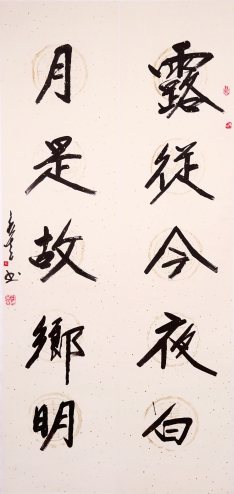 露從今夜白
月是故鄉明